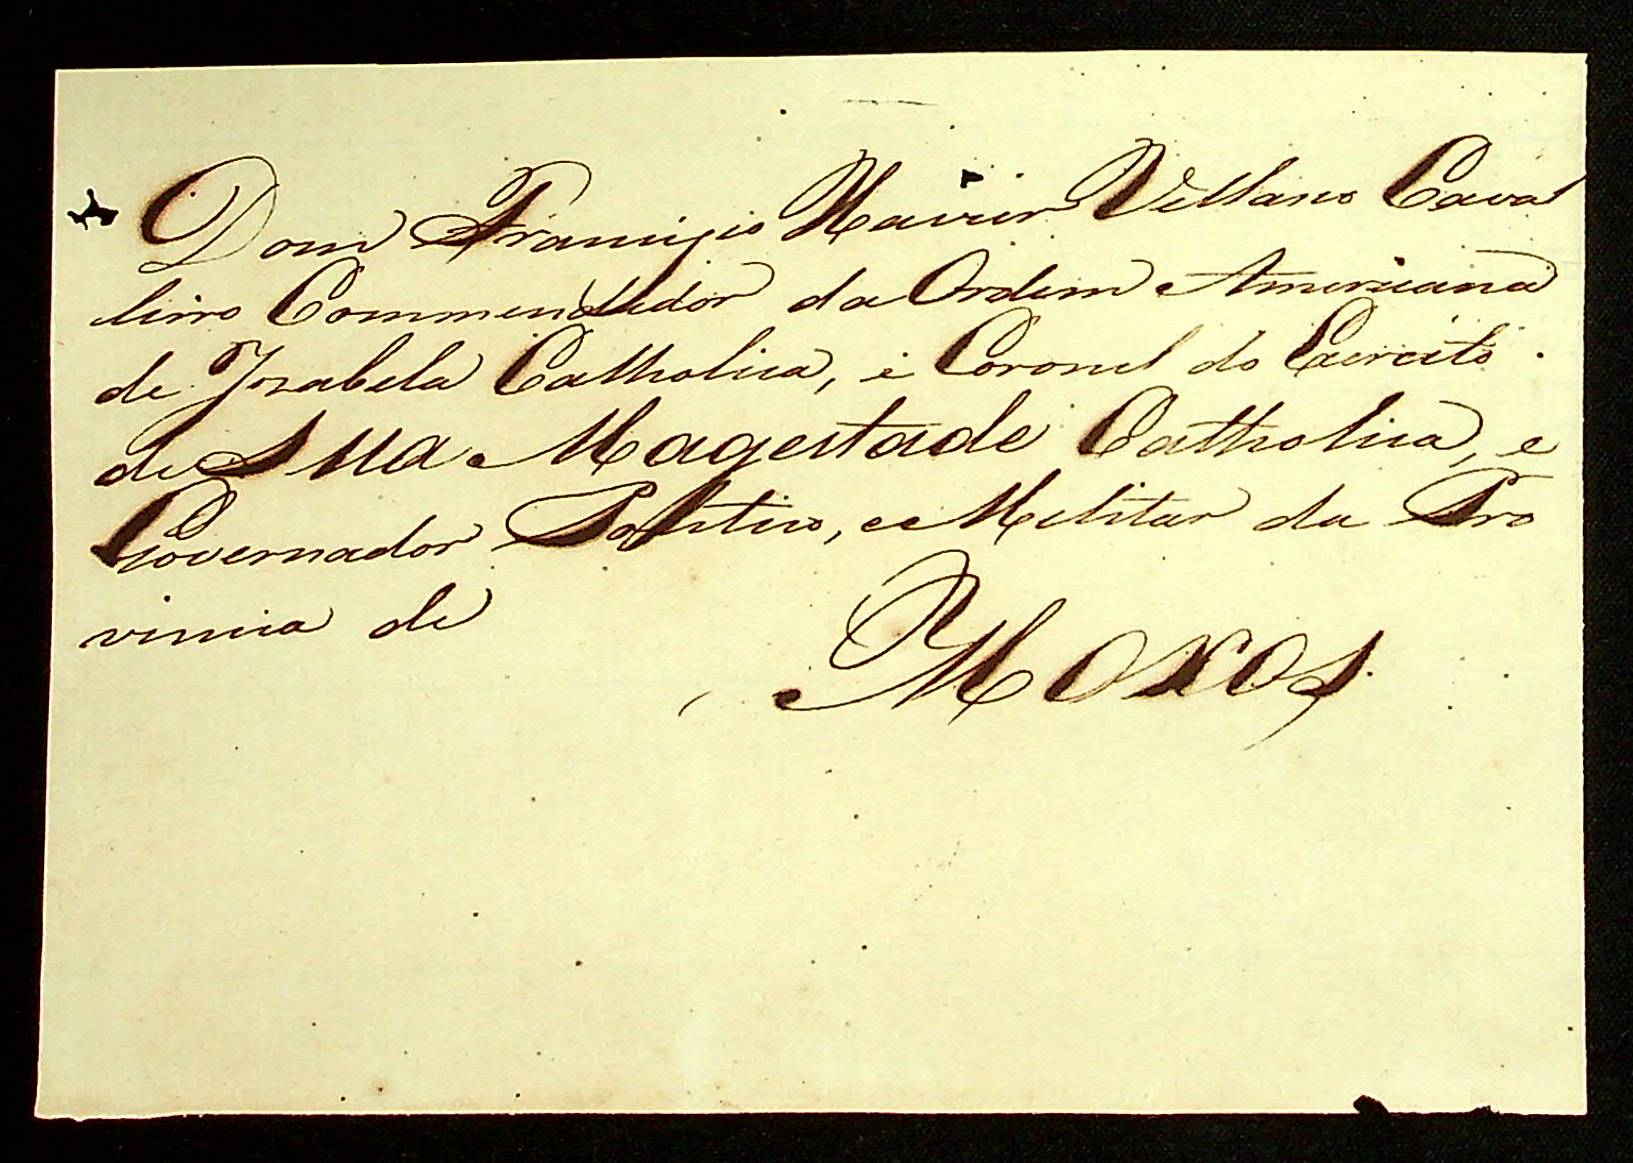 Dom Francisco Xavier Vellano Caval
leiro Commendador da Ordem Americana
de Izabela Catholica, e Coronel do Exercito
de Sua Magestade Catholica, e
Governador Politico, e Melitar da Pro
vincia de
Moxos